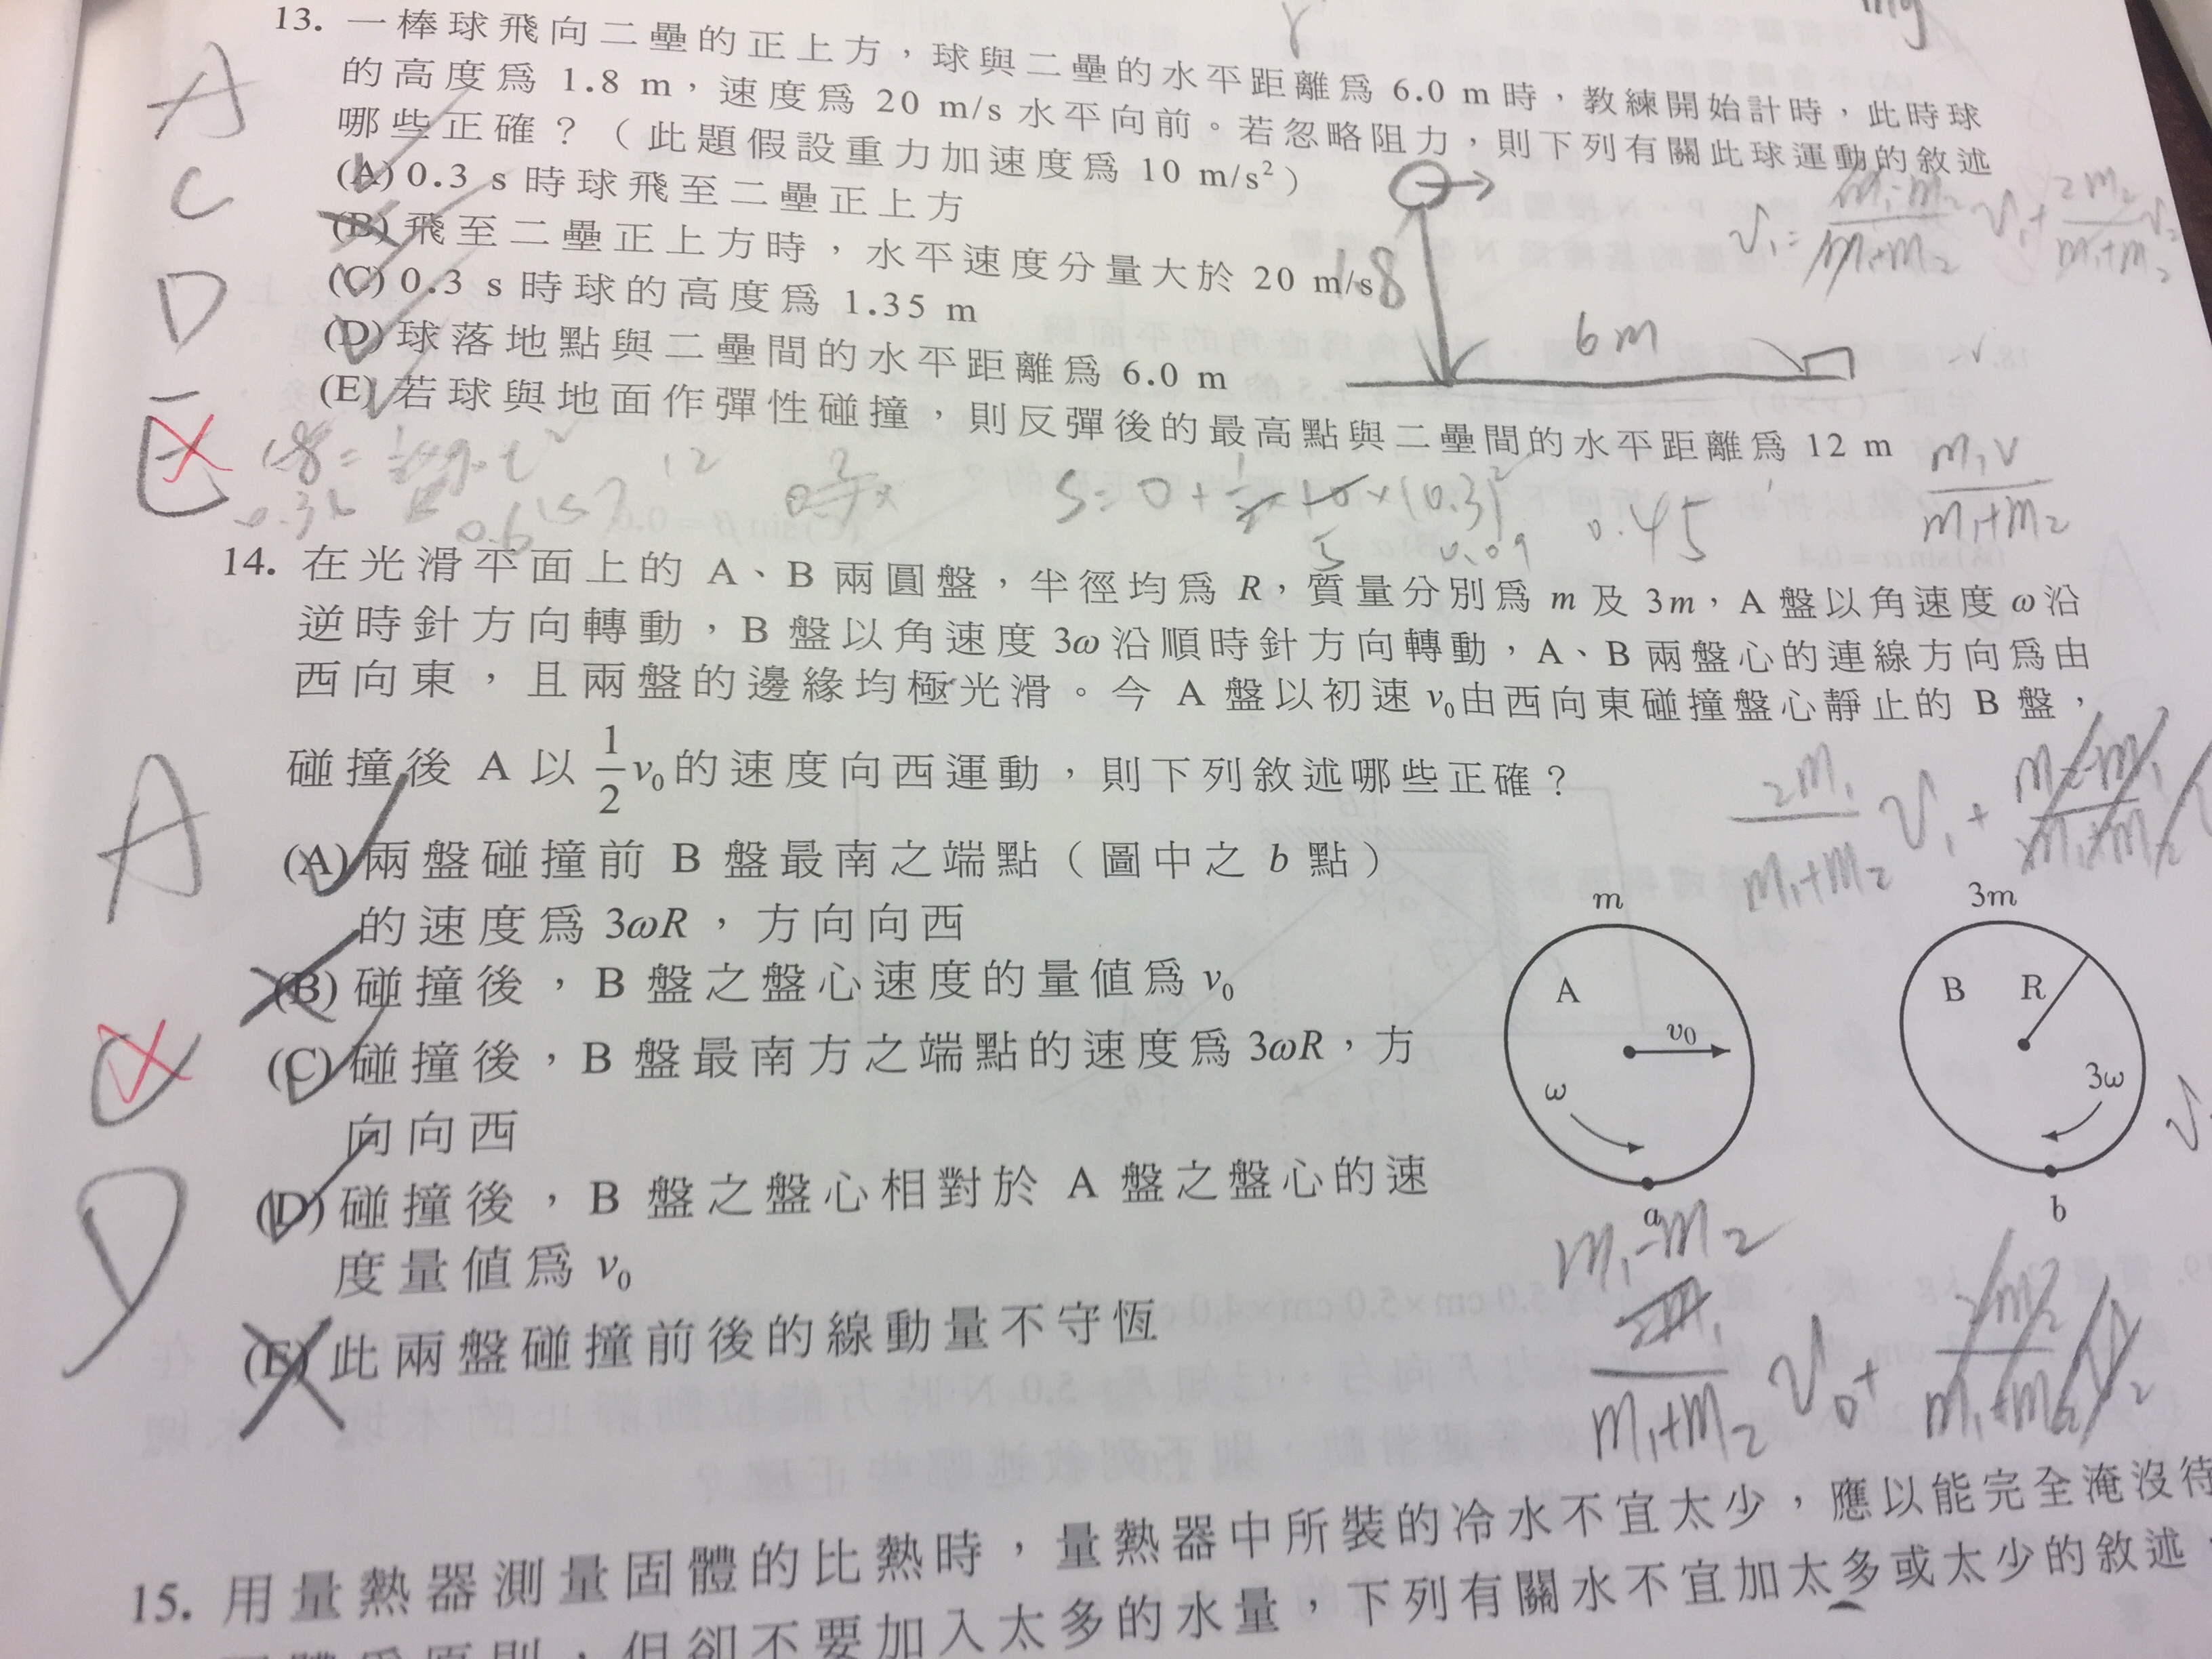 13. 一棒球飛向二壘的正上方，球與二壘的水平距離為 6.0 m 時，教練開始計時，此時球
的高度為 1.8 m，速度為 20 m/s 水平向前。若忽略阻力，則下列有關此球運動的敘述
哪些正確？（此題假設重力加速度為 10 m/s²）
(A) 0.3 s 時球飛至二壘正上方
(B) 飛至二壘正上方時，水平速度分量大於 20 m/s
(C) 0.3 s 時球的高度為 1.35 m
(D) 球落地點與二壘間的水平距離為 6.0 m
(E) 若球與地面作彈性碰撞，則反彈後的最高點與二壘間的水平距離為 12 m
A
C
D
E
1.8
6 m
12
0.6
S = 0 + ½ × 10 × (0.3)²
5
0.09
0.45
m₁v
m₁+m₂
14. 在光滑平面上的 A、B 兩圓盤，半徑均為 R，質量分別為 m 及 3m，A 盤以角速度 ω 沿
逆時針方向轉動，B 盤以角速度 3ω 沿順時針方向轉動，A、B 兩盤心的連線方向為由
西向東，且兩盤的邊緣均極光滑。今 A 盤以初速 v₀由西向東碰撞盤心靜止的 B 盤，
碰撞後 A 以 1/2 v₀的速度向西運動，則下列敘述哪些正確？
(A) 兩盤碰撞前 B 盤最南之端點（圖中之 b 點）
的速度為 3ωR，方向向西
(B) 碰撞後，B 盤之盤心速度的量值為 v₀
(C) 碰撞後，B 盤最南方之端點的速度為 3ωR，方
向向西
(D) 碰撞後，B 盤之盤心相對於 A 盤之盤心的速
度量值為 v₀
(E) 此兩盤碰撞前後的線動量不守恆
A
C
D
m
A
v₀
ω
a
3m
B R
3ω
b
15. 用量熱器測量固體的比熱時，量熱器中所裝的冷水不宜太少，應以能完全淹沒待
固體為原則，但卻不要加入太多的水量，下列有關水不宜加太多或太少的敘述